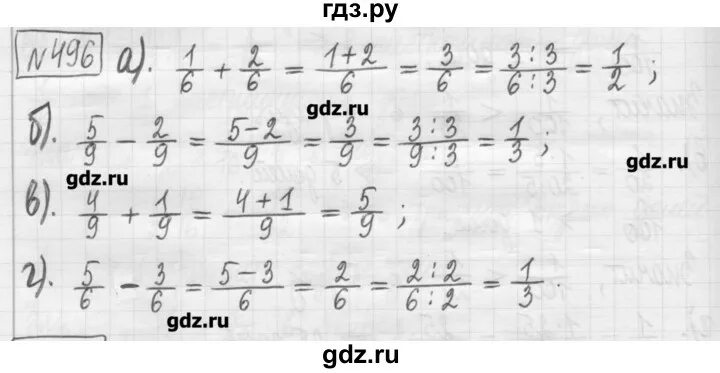 гдз.ру
№496 а). 1/6 + 2/6 = 1+2/6 = 3/6 = 3:3/6:3 = 1/2 ;
gdz.ru
б). 5/9 − 2/9 = 5−2/9 = 3/9 = 3:3/9:3 = 1/3 ;
gdz.ru
gdz.ru
в). 4/9 + 1/9 = 4+1/9 = 5/9 ;
г). 5/6 − 3/6 = 5−3/6 = 2/6 = 2:2/6:2 = 1/3 .
gdz.ru
gdz.ru